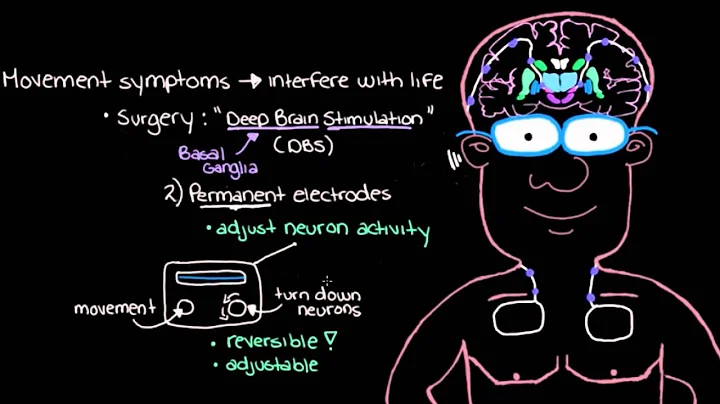 Movement symptoms → interfere with life
• Surgery: "Deep Brain Stimulation"
(DBS)
Basal
Ganglia
2) Permanent electrodes
• adjust neuron activity
movement
turn down
neurons
• reversible!
• adjustable